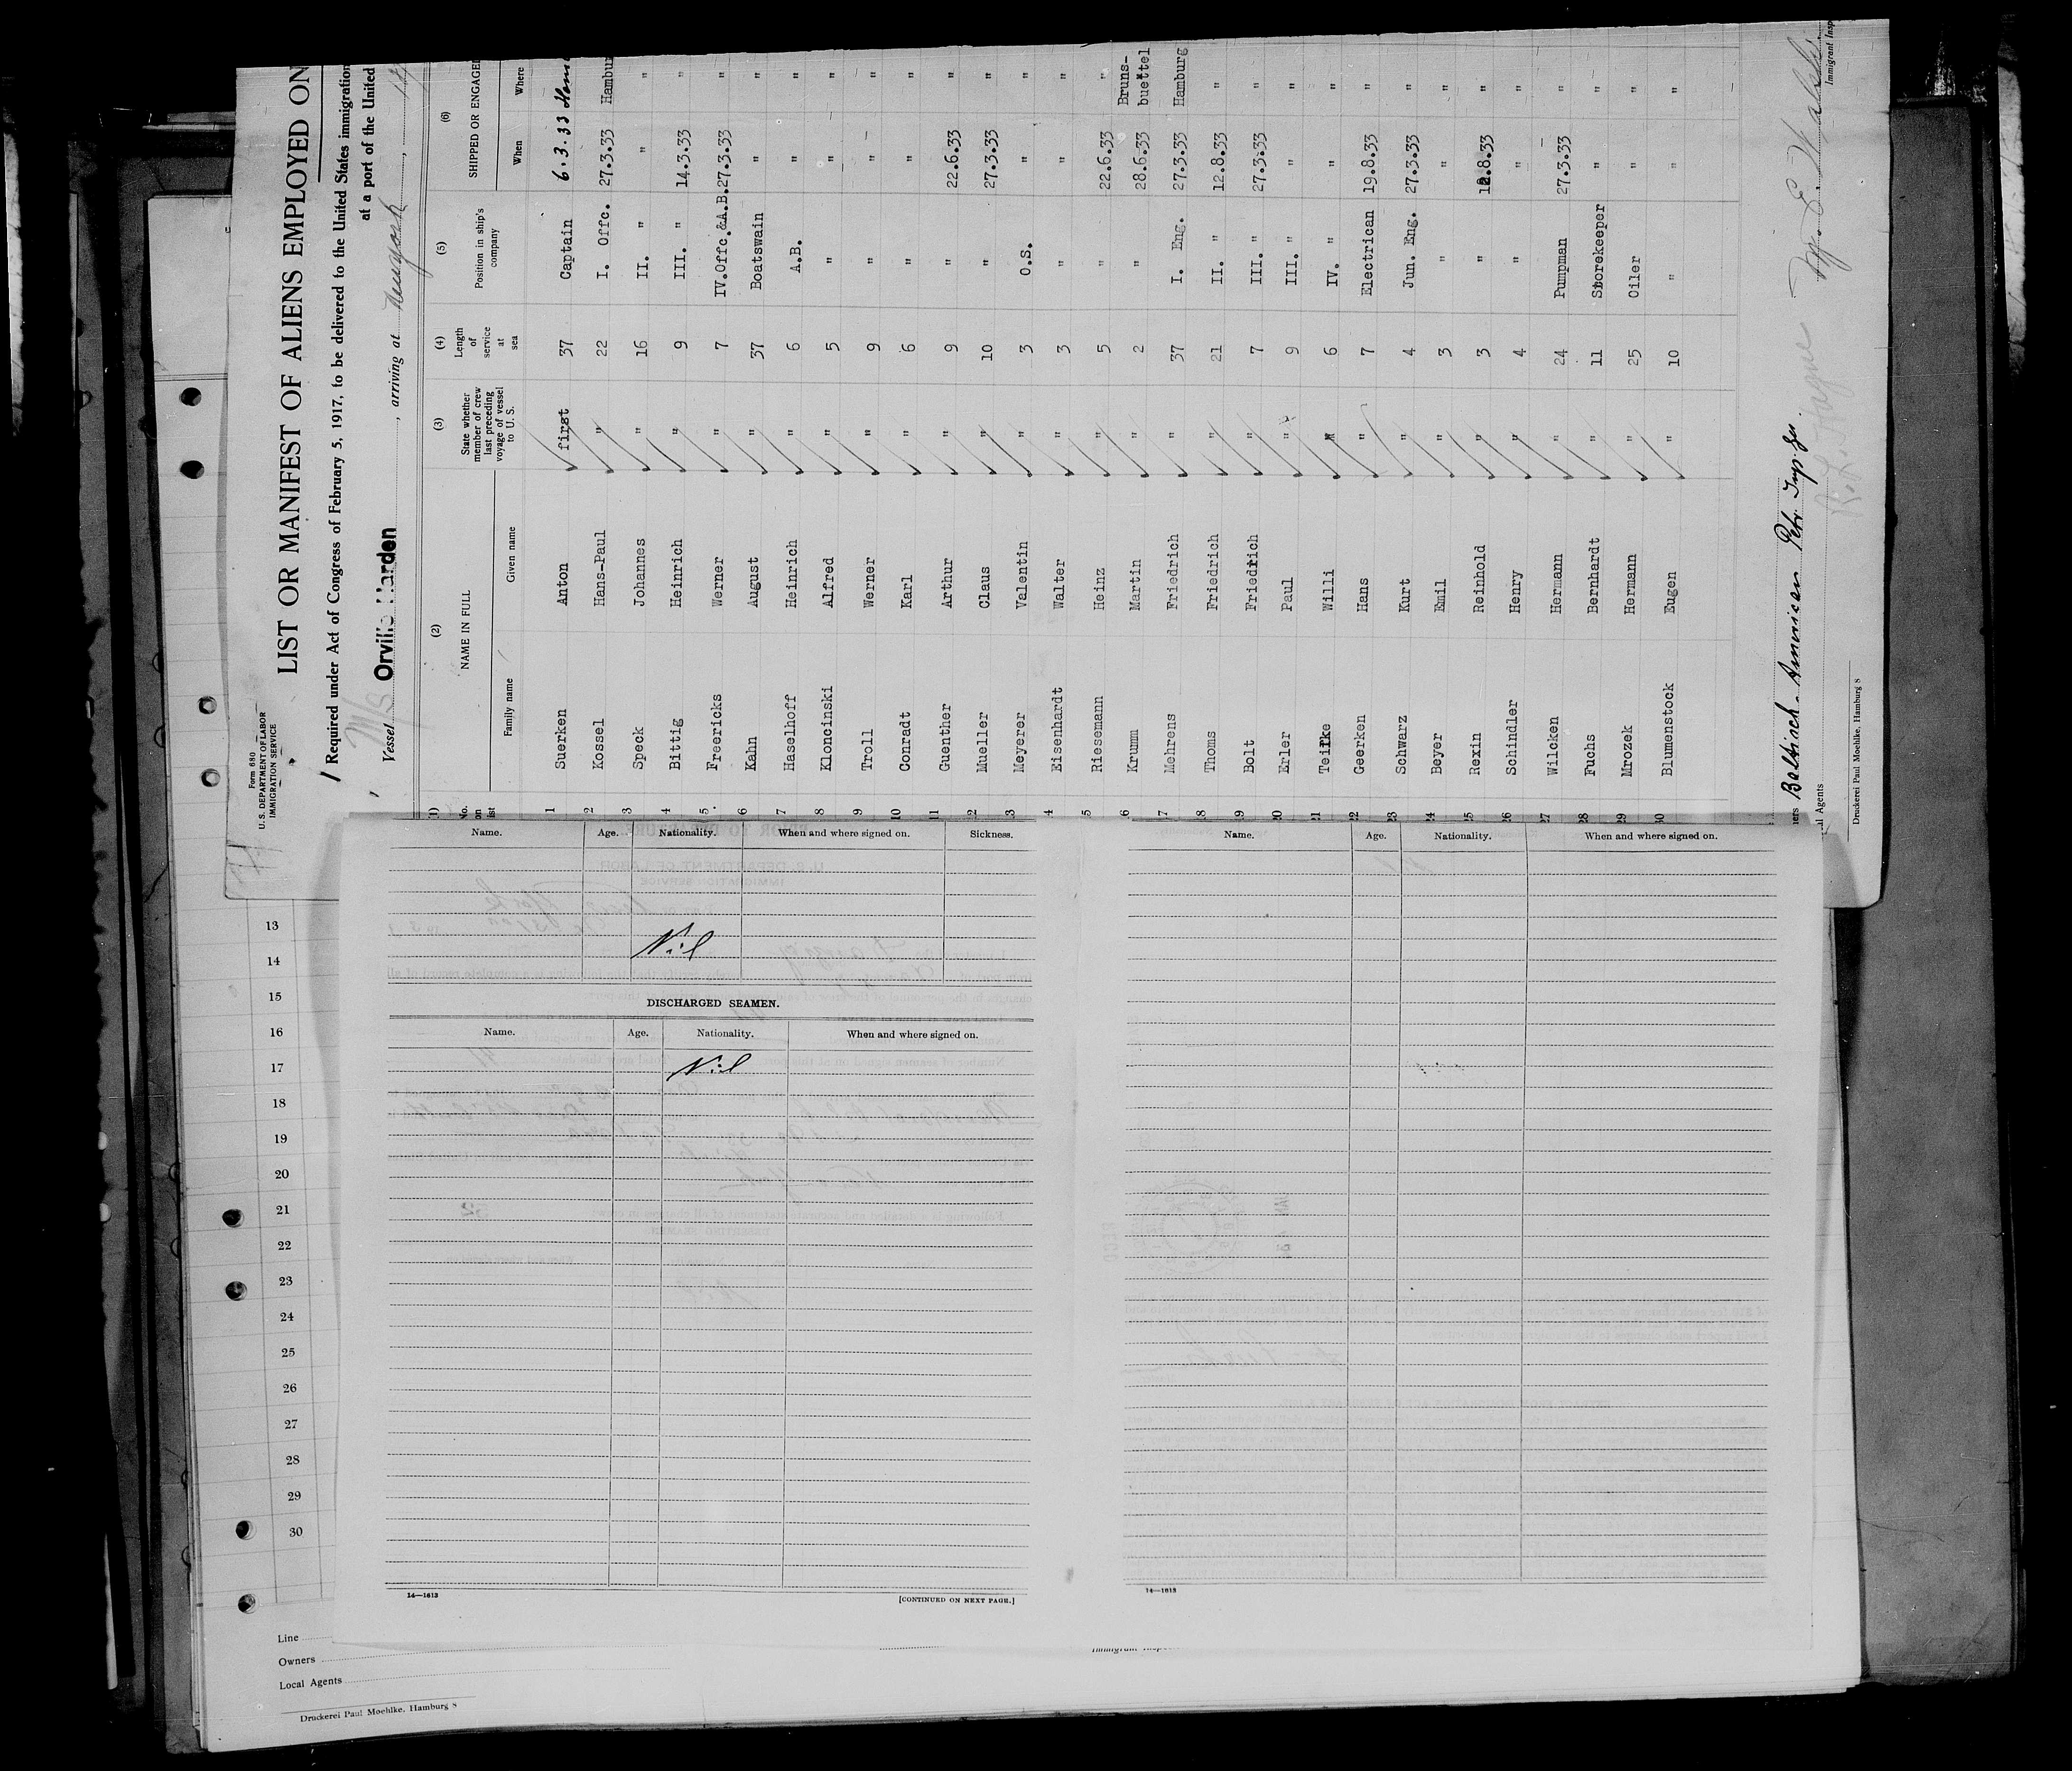 Form 680
U. S. DEPARTMENT OF LABOR
IMMIGRATION SERVICE
LIST OR MANIFEST OF ALIENS EMPLOYED ON
Required under Act of Congress of February 5, 1917, to be delivered to the United States immigration
at a port of the United
Vessel M/S Orville Harden, arriving at Newyork,
(1) (2) (3) (4) (5) (6)
No. on list NAME IN FULL State whether member of crew last preceding voyage of vessel to U. S. Length of service at sea Position in ship's company SHIPPED OR ENGAGED
Family name Given name When Where
1 Suerken Anton first 37 Captain 6.3.33
2 Kossel Hans-Paul " 22 I. Offc. 27.3.33 Hambur
3 Speck Johannes " 16 II. " " "
4 Bittig Heinrich " 9 III. " 14.3.33 "
5 Freericks Werner " 7 IV.Offc.&A.B. 27.3.33 "
6 Kahn August " 37 Boatswain " "
7 Haselhoff Heinrich " 6 A.B. " "
8 Kloncinski Alfred " 5 " " "
9 Troll Werner " 9 " " "
10 Conradt Karl " 6 " " "
11 Guenther Arthur " 9 " 22.6.33 "
2 Mueller Claus " 10 " 27.3.33 "
3 Meyerer Valentin " 3 O.S. " "
4 Eisenhardt Walter " 3 " " "
5 Riesemann Heinz " 5 " 22.6.33 "
6 Krumm Martin " 2 " 28.6.33 Bruns-buettel
7 Mehrens Friedrich " 37 I. Eng. 27.3.33 Hamburg
8 Thoms Friedrich " 21 II. " 12.8.33 "
9 Bolt Friedrich " 7 III. " 27.3.33 "
20 Erler Paul " 9 III. " " "
21 Teirke Willi " 6 IV. " " "
22 Geerken Hans " 7 Electrican 19.8.33 "
23 Schwarz Kurt " 4 Jun. Eng. 27.3.33 "
24 Beyer Emil " 3 " " "
25 Rexin Reinhold " 3 " 12.8.33 "
26 Schindler Henry " 4 " " "
27 Wilcken Hermann " 24 Pumpman 27.3.33 "
28 Fuchs Bernhardt " 11 Storekeeper " "
29 Mrozek Hermann " 25 Oiler " "
30 Blumenstock Eugen " 10 " " "
ners Baltisch-American Petr. Imp. Ges.
al Agents
Immigrant Insp
Druckerei Paul Moehlke, Hamburg 8
Name. Age. Nationality. When and where signed on. Sickness.
Nil
DISCHARGED SEAMEN.
Name. Age. Nationality. When and where signed on.
Nil
14—1613
[CONTINUED ON NEXT PAGE.]
Name. Age. Nationality. When and where signed on.
14—1613
13
14
15
16
17
18
19
20
21
22
23
24
25
26
27
28
29
30
Line
Owners
Local Agents
Druckerei Paul Moehlke, Hamburg 8